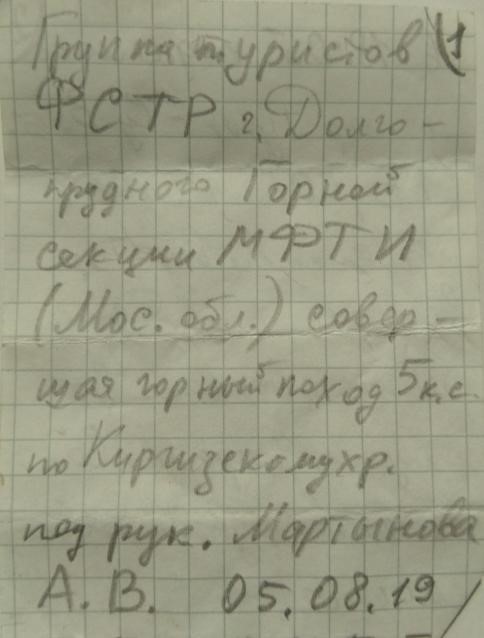 Группа туристов (1
ФСТР г. Долго-
прудного Горной
секции МФТИ
(Мос. обл.) совер-
шая горный поход 5 к.с.
по Киргизскому хр.
под рук. Мартынова
А. В. 05.08.19